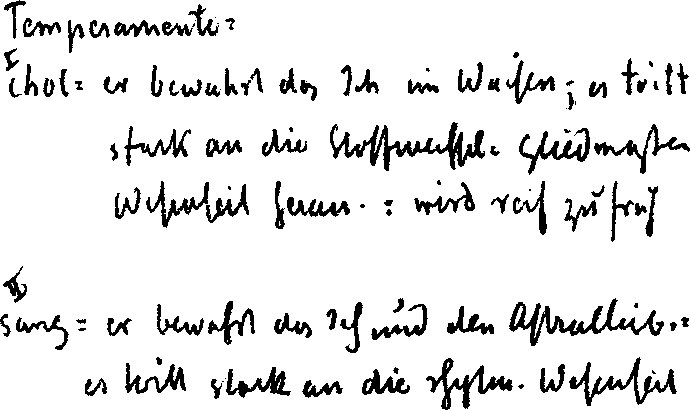 Temperamente =
I
chol = er bewahrt das Ich im Wachsen; es tritt
stark an die Stoffwechsel = Gliedmaßen
Wesenheit heran. = wird reif zu früh
II
sang = er bewahrt das Ich und den Astralleib. =
es tritt stark an die rhythm. Wesenheit